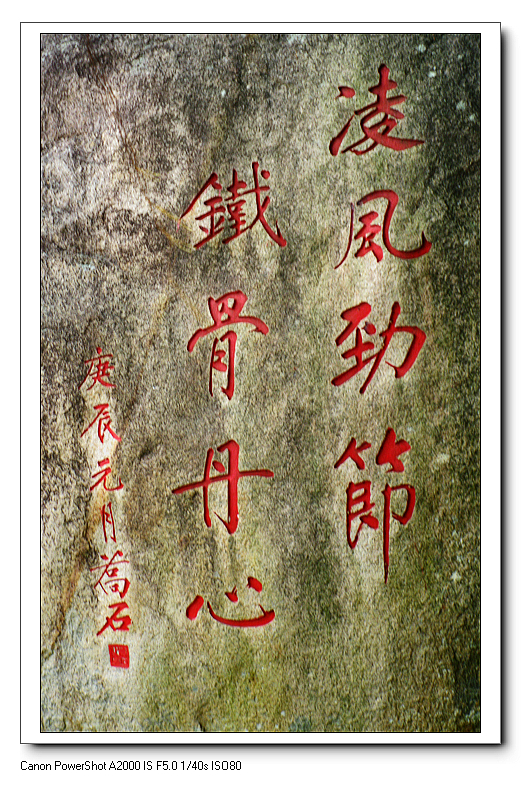 凌風勁節
鐵骨丹心
庚辰元月喬石
Canon PowerShot A2000 IS F5.0 1/40s ISO80